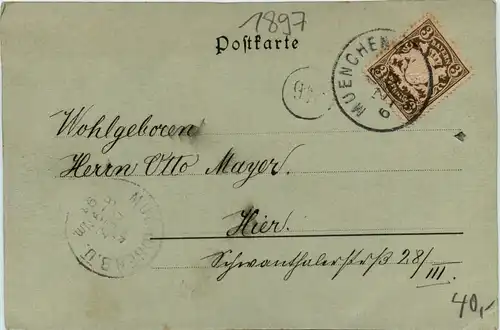 1897
Postkarte
MUENCHEN
6
3
3
3
3
Wohlgeboren
Herrn Otto Mayer.
Hier.
Schwanthalerstrß 28/
III.
40,-